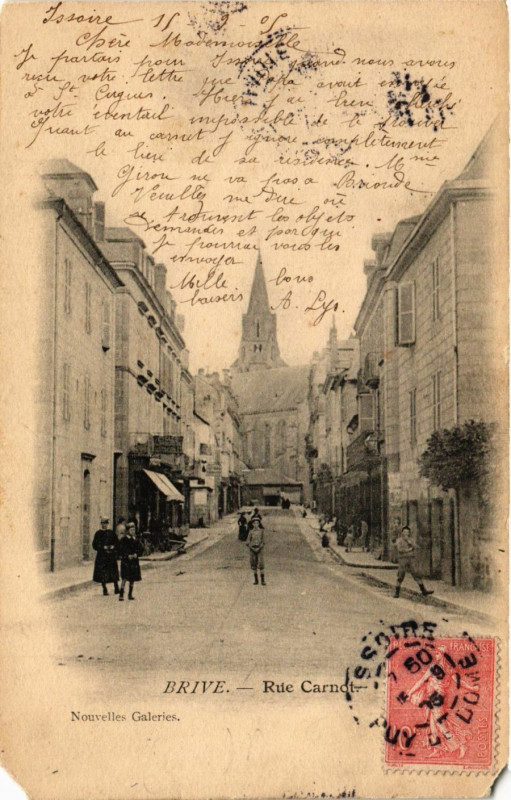 Issoire 15 9 05
Chère Mademoiselle
Je partais pour Issoire quand nous avons
reçu votre lettre que Papa avait envoyée
à St Cirgues. Hier j'ai bien cherché
votre éventail impossible de le trouver
Quant au carnet j'ignore complètement
le lieu de sa résidence. Mme
Girou ne va pas à Brioude
Veuillez me dire où
se trouvent les objets
demandés et par qui
je pourrai vous les
envoyer
Mille bons
baisers A. Lys.
BRIVE. — Rue Carnot.
Nouvelles Galeries.
ISSOIRE
PUY-DE-DOME
FRANÇAISE